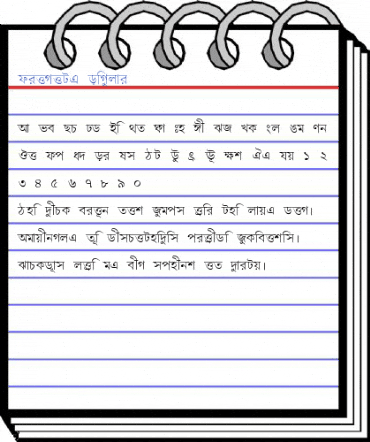 ফরত্তগত্তটএ ড়গিুলার
আ ভব ছচ ঢড ইি থত ষ্কা ঃহ ঙ্গী ঝজ খক ংল ঙম ণন
ঔত্ত ফপ ধদ ড়র ষস ঠট উু ৎ ঊূ ক্ষশ ঐএ যয় ১ ২
৩ ৪ ৫ ৬ ৭ ৮ ৯ ০
ঠহি দ্বীচক বরত্তূন তত্তশ জুমপস ত্তরি টহি লায়এ ডত্তগ।
অমায়ীনগলএ ত্বি ডীসচত্তটহদ্বিসি পরত্তীডি জুকবিত্তশসি।
ঝাচকড়্বাস লত্তি মএ বীগ সপহীনশ ত্তত দ্বারটয়।